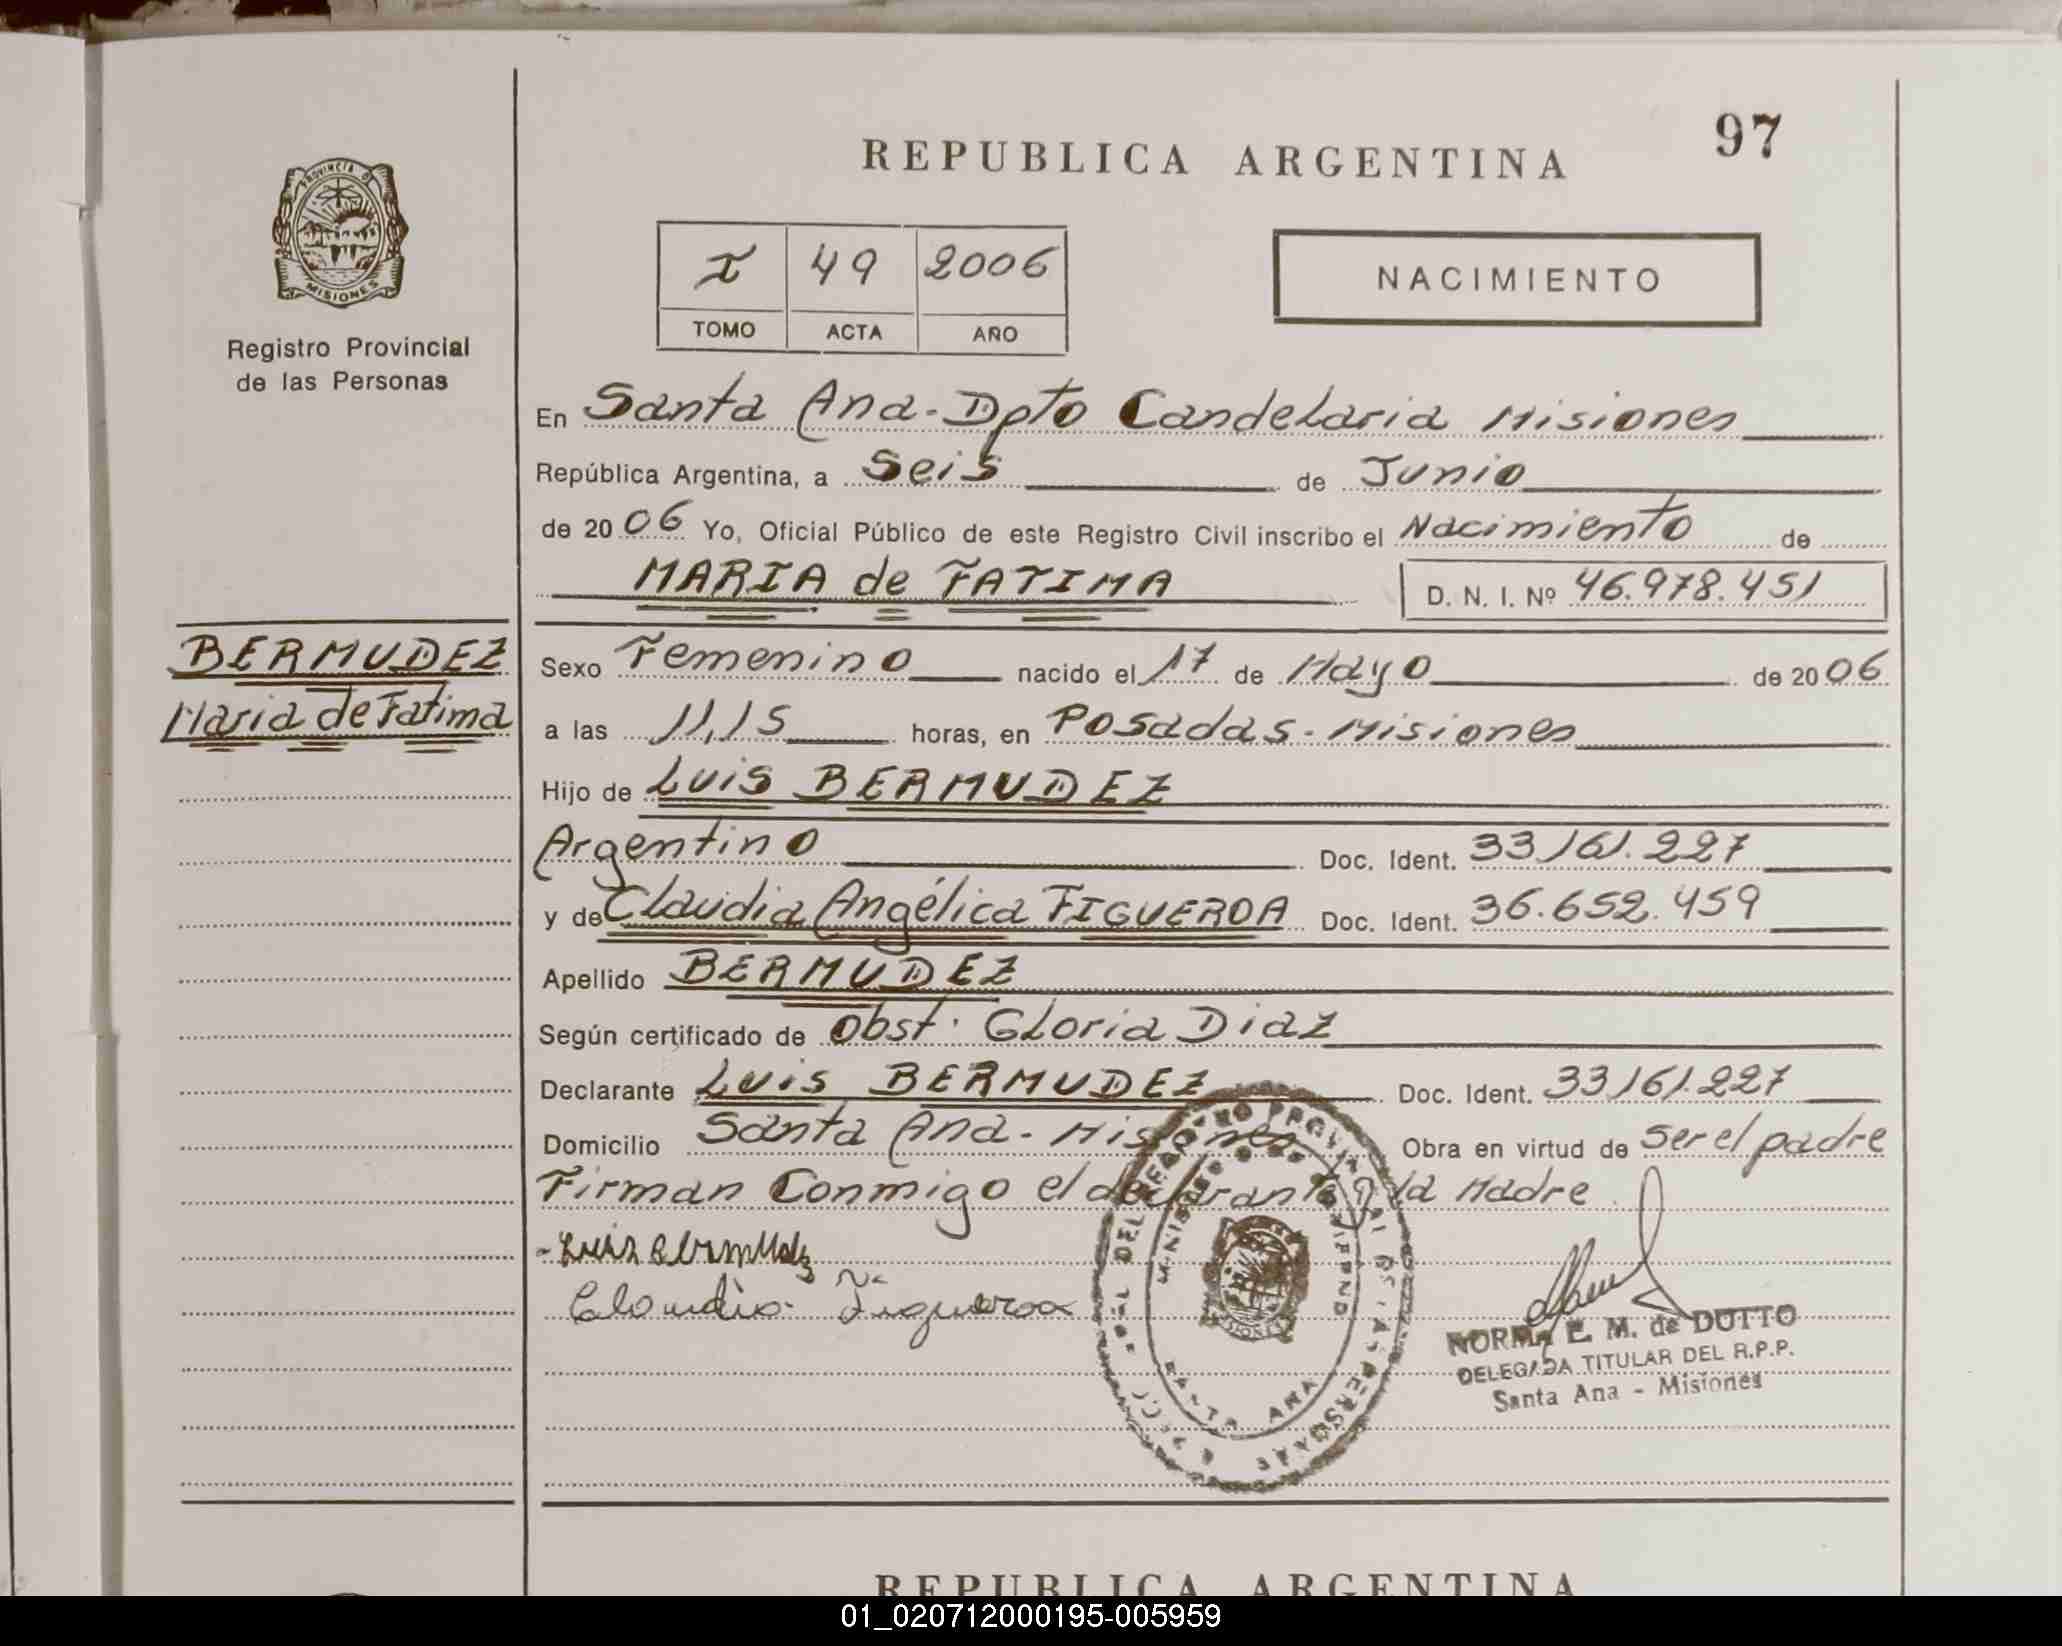 97
REPUBLICA ARGENTINA
PROVINCIA D
MISIONES
Registro Provincial
de las Personas
I 49 2006
TOMO ACTA AÑO
NACIMIENTO
En Santa Ana - Dpto Candelaria Misiones
República Argentina, a Seis de Junio
de 2006 Yo, Oficial Público de este Registro Civil inscribo el Nacimiento de
MARIA de FATIMA D. N. I. Nº 46.978.451
BERMUDEZ
Maria de Fatima
Sexo Femenino nacido el 17 de Mayo de 2006
a las 11,15 horas, en Posadas - Misiones
Hijo de Luis BERMUDEZ
Argentino Doc. Ident. 33.161.227
y de Claudia Angélica FIGUEROA Doc. Ident. 36.652.459
Apellido BERMUDEZ
Según certificado de Obst. Gloria Diaz
Declarante Luis BERMUDEZ Doc. Ident. 33.161.227
Domicilio Santa Ana - Misiones Obra en virtud de ser el padre
Firman Conmigo el declarante y la Madre.
Claudia Figueroa
SANTA ANA
NORMA E. M. de DUTTO
DELEGADA TITULAR DEL R.P.P.
Santa Ana - Misiones
REPUBLICA ARGENTINA
01_020712000195-005959